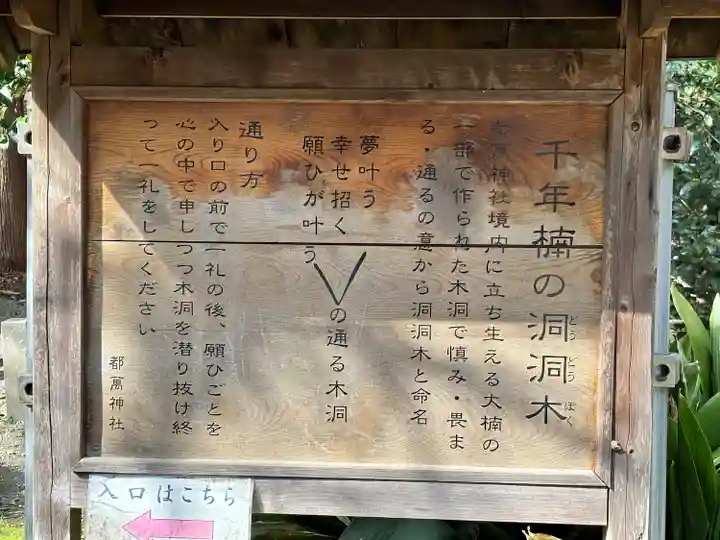 千年楠の洞洞木
どう どう ぼく
神社境内に立ち生える大楠の
一部で作られた木洞で慎み・畏ま
る・通るの意から洞洞木と命名
夢叶う
幸せ招く
願ひが叶う
の通る木洞
通り方
入り口の前で一礼の後、願ひごとを
心の中で申しつつ木洞を潜り抜け終
って一礼をしてください
都萬神社
入口はこちら